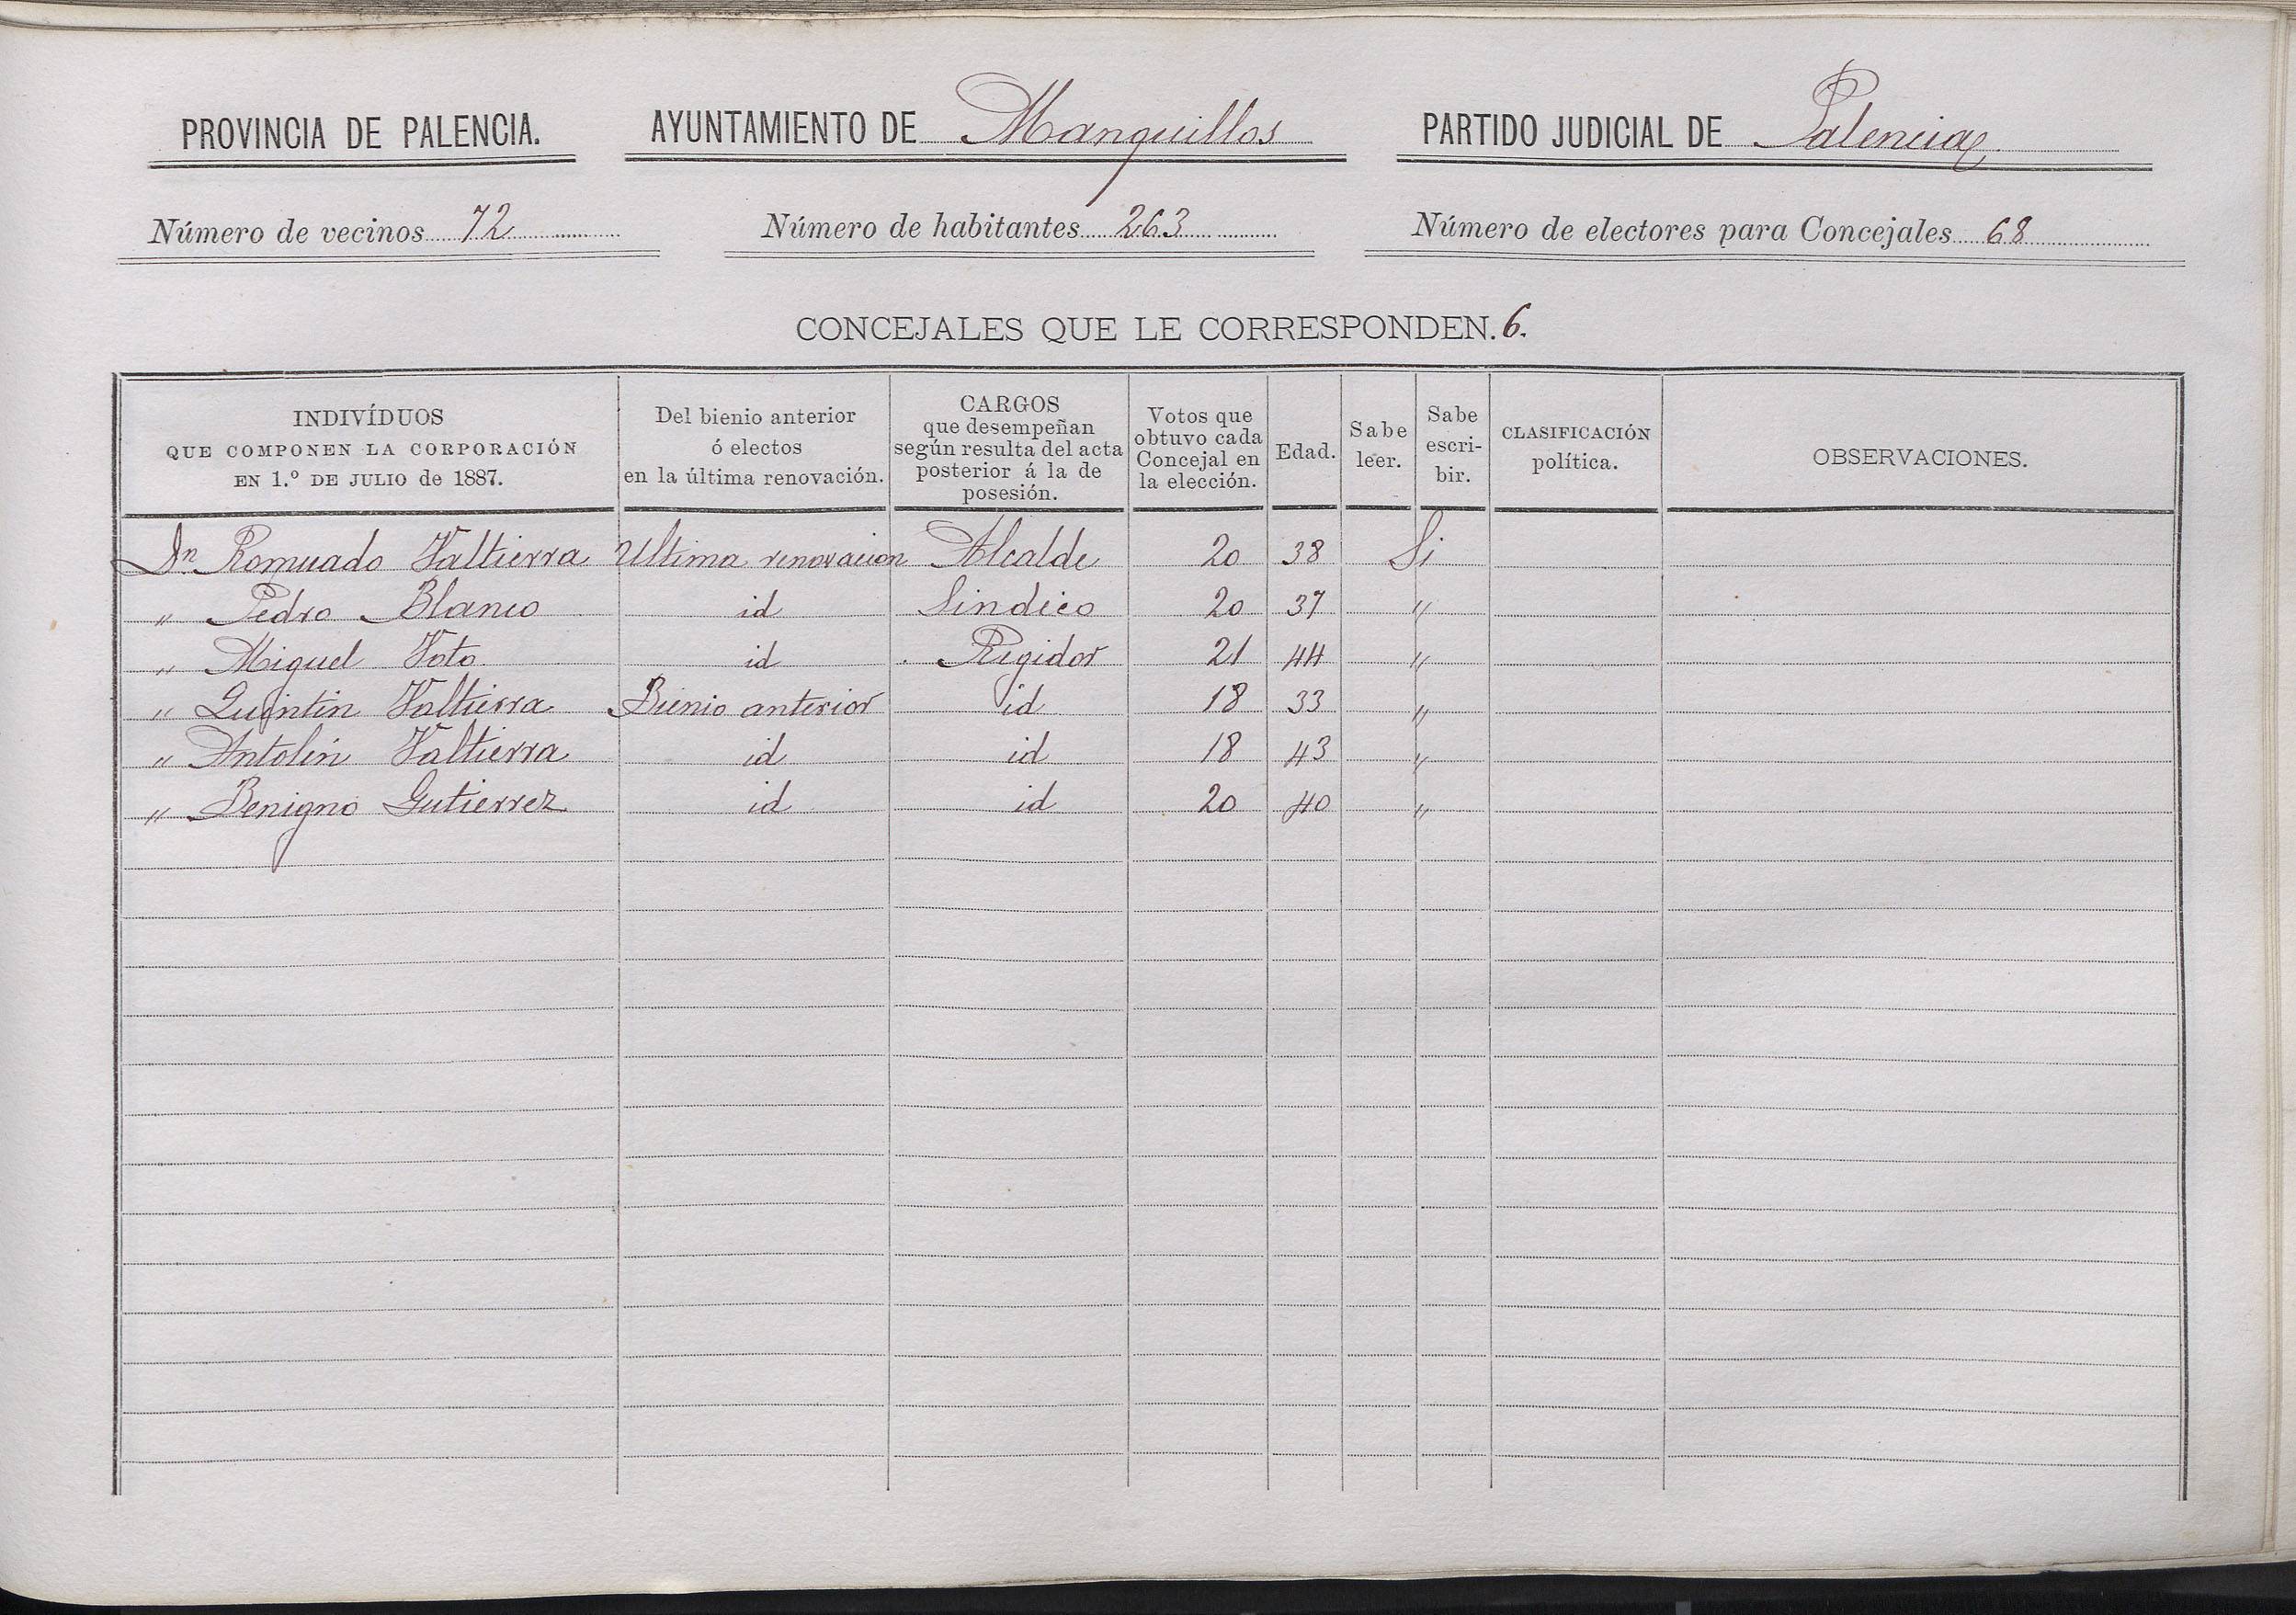 PROVINCIA DE PALENCIA. AYUNTAMIENTO DE Manquillos PARTIDO JUDICIAL DE Palencia
Número de vecinos 72 Número de habitantes 263 Número de electores para Concejales 68
CONCEJALES QUE LE CORRESPONDEN. 6.
INDIVÍDUOS
QUE COMPONEN LA CORPORACIÓN
EN 1.º DE JULIO de 1887.
Del bienio anterior
ó electos
en la última renovación.
CARGOS
que desempeñan
según resulta del acta
posterior á la de
posesión.
Votos que
obtuvo cada
Concejal en
la elección.
Edad.
Sabe
leer.
Sabe
escri-
bir.
CLASIFICACIÓN
política.
OBSERVACIONES.
Dn Romuado Valtierra Ultima renovacion Alcalde 20 38 Si
" Pedro Blanco id Sindico 20 37 "
" Miguel Voto id Rigidor 21 44 "
" Quintin Valtierra Bienio anterior id 18 33 "
" Antolin Valtierra id id 18 43 "
" Benigno Gutierrez id id 20 40 "